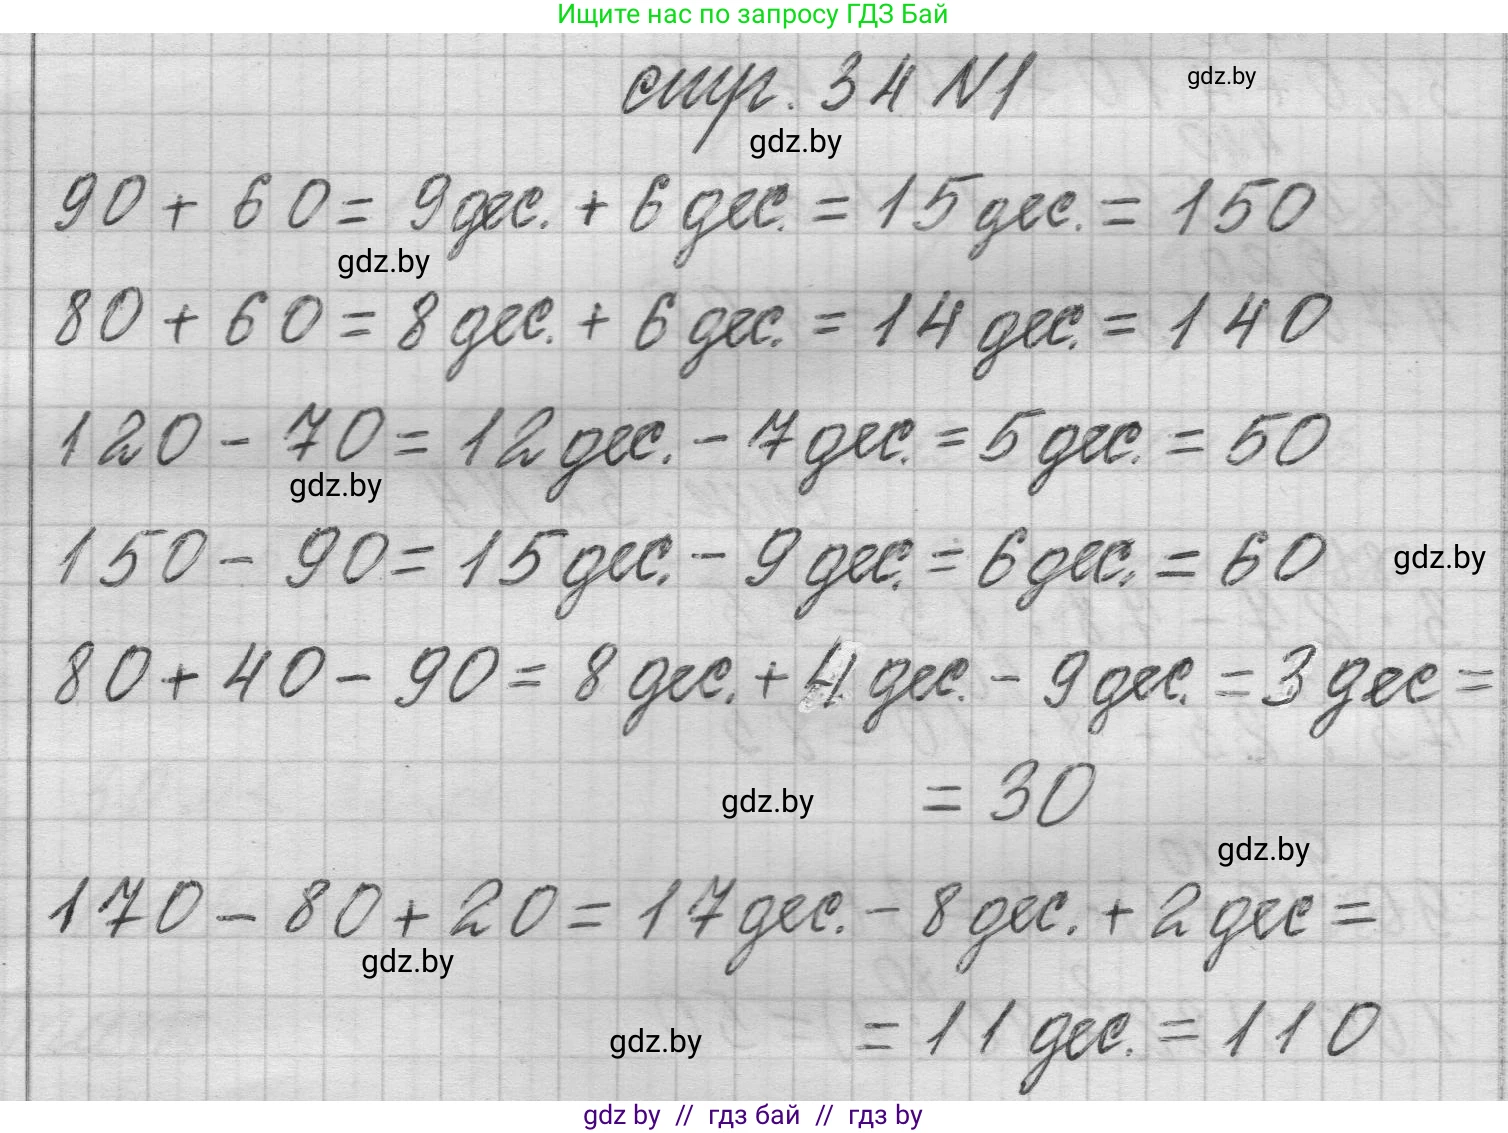 Ищите нас по запросу ГДЗ Бай
стр. 34 N1
gdz.by
gdz.by
90 + 60 = 9 дес. + 6 дес. = 15 дес. = 150
gdz.by
80 + 60 = 8 дес. + 6 дес. = 14 дес. = 140
120 - 70 = 12 дес. - 7 дес. = 5 дес. = 50
gdz.by
150 - 90 = 15 дес. - 9 дес. = 6 дес. = 60
gdz.by
80 + 40 - 90 = 8 дес. + 4 дес. - 9 дес. = 3 дес =
= 30
gdz.by
gdz.by
170 - 80 + 20 = 17 дес. - 8 дес. + 2 дес =
gdz.by
= 11 дес. = 110
gdz.by
gdz by // гдз бай // гдз by